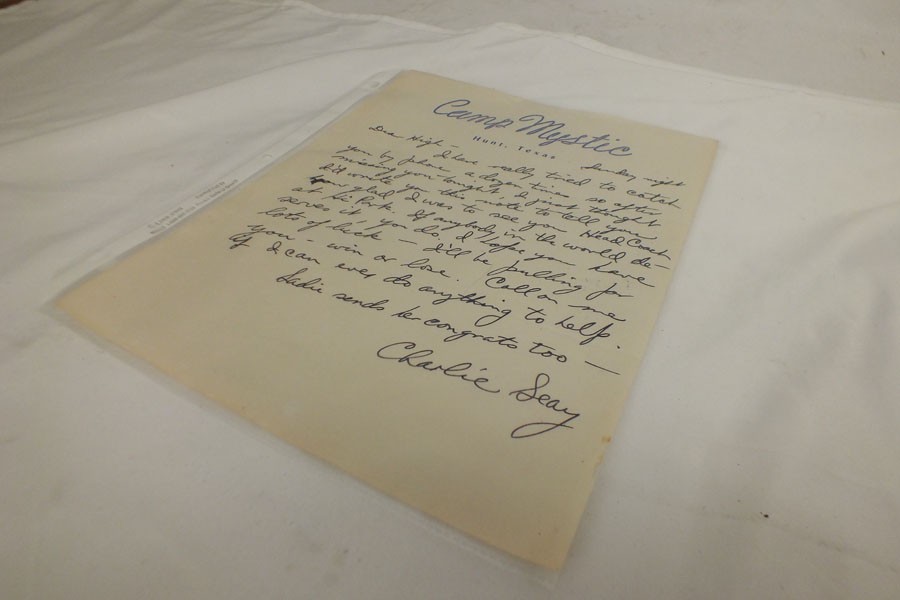 Camp Mystic
Hunt, Texas
Sunday night
Dear High — I have really tried to catch
you by phone a dozen times so after
missing you tonight I just thought
I'd write you this note to tell you
how glad I was to see you Head Coach
at Hi Park. If anybody in the world de-
serves it you do. I hope you have
lots of luck — I'll be pulling for
you — win or lose. Call on me
if I can ever do anything to help.
Sadie sends her congrats too —
Charlie Seay